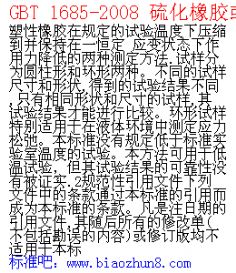 GBT 1685-2008 硫化橡胶或
塑性橡胶在规定的试验温度下压缩
到并保持在一恒定 应变状态下作
用力降低的两种测定方法.试样分
为圆柱形和环形两种。不同的试样
尺寸和形状,得到的试验结果不同
,只有相同形状和尺寸的试样,其
试验结果才能进行比较。环形试样
特别适用于在液体环境中测定应力
松弛。本标准没有规定低于标准实
验室温度的试验。本方法可用于低
温试验,但其试验结果的可靠性没
有被证实.2规范性引用文件下列
文件中的条款通过本标准的引用而
成为本标准的条款。凡是注日期的
引用文件,其随后所有的修改单(
不包括勘误的内容)或修订版均不
适用于本标
标准吧.www.biaozhun8.com